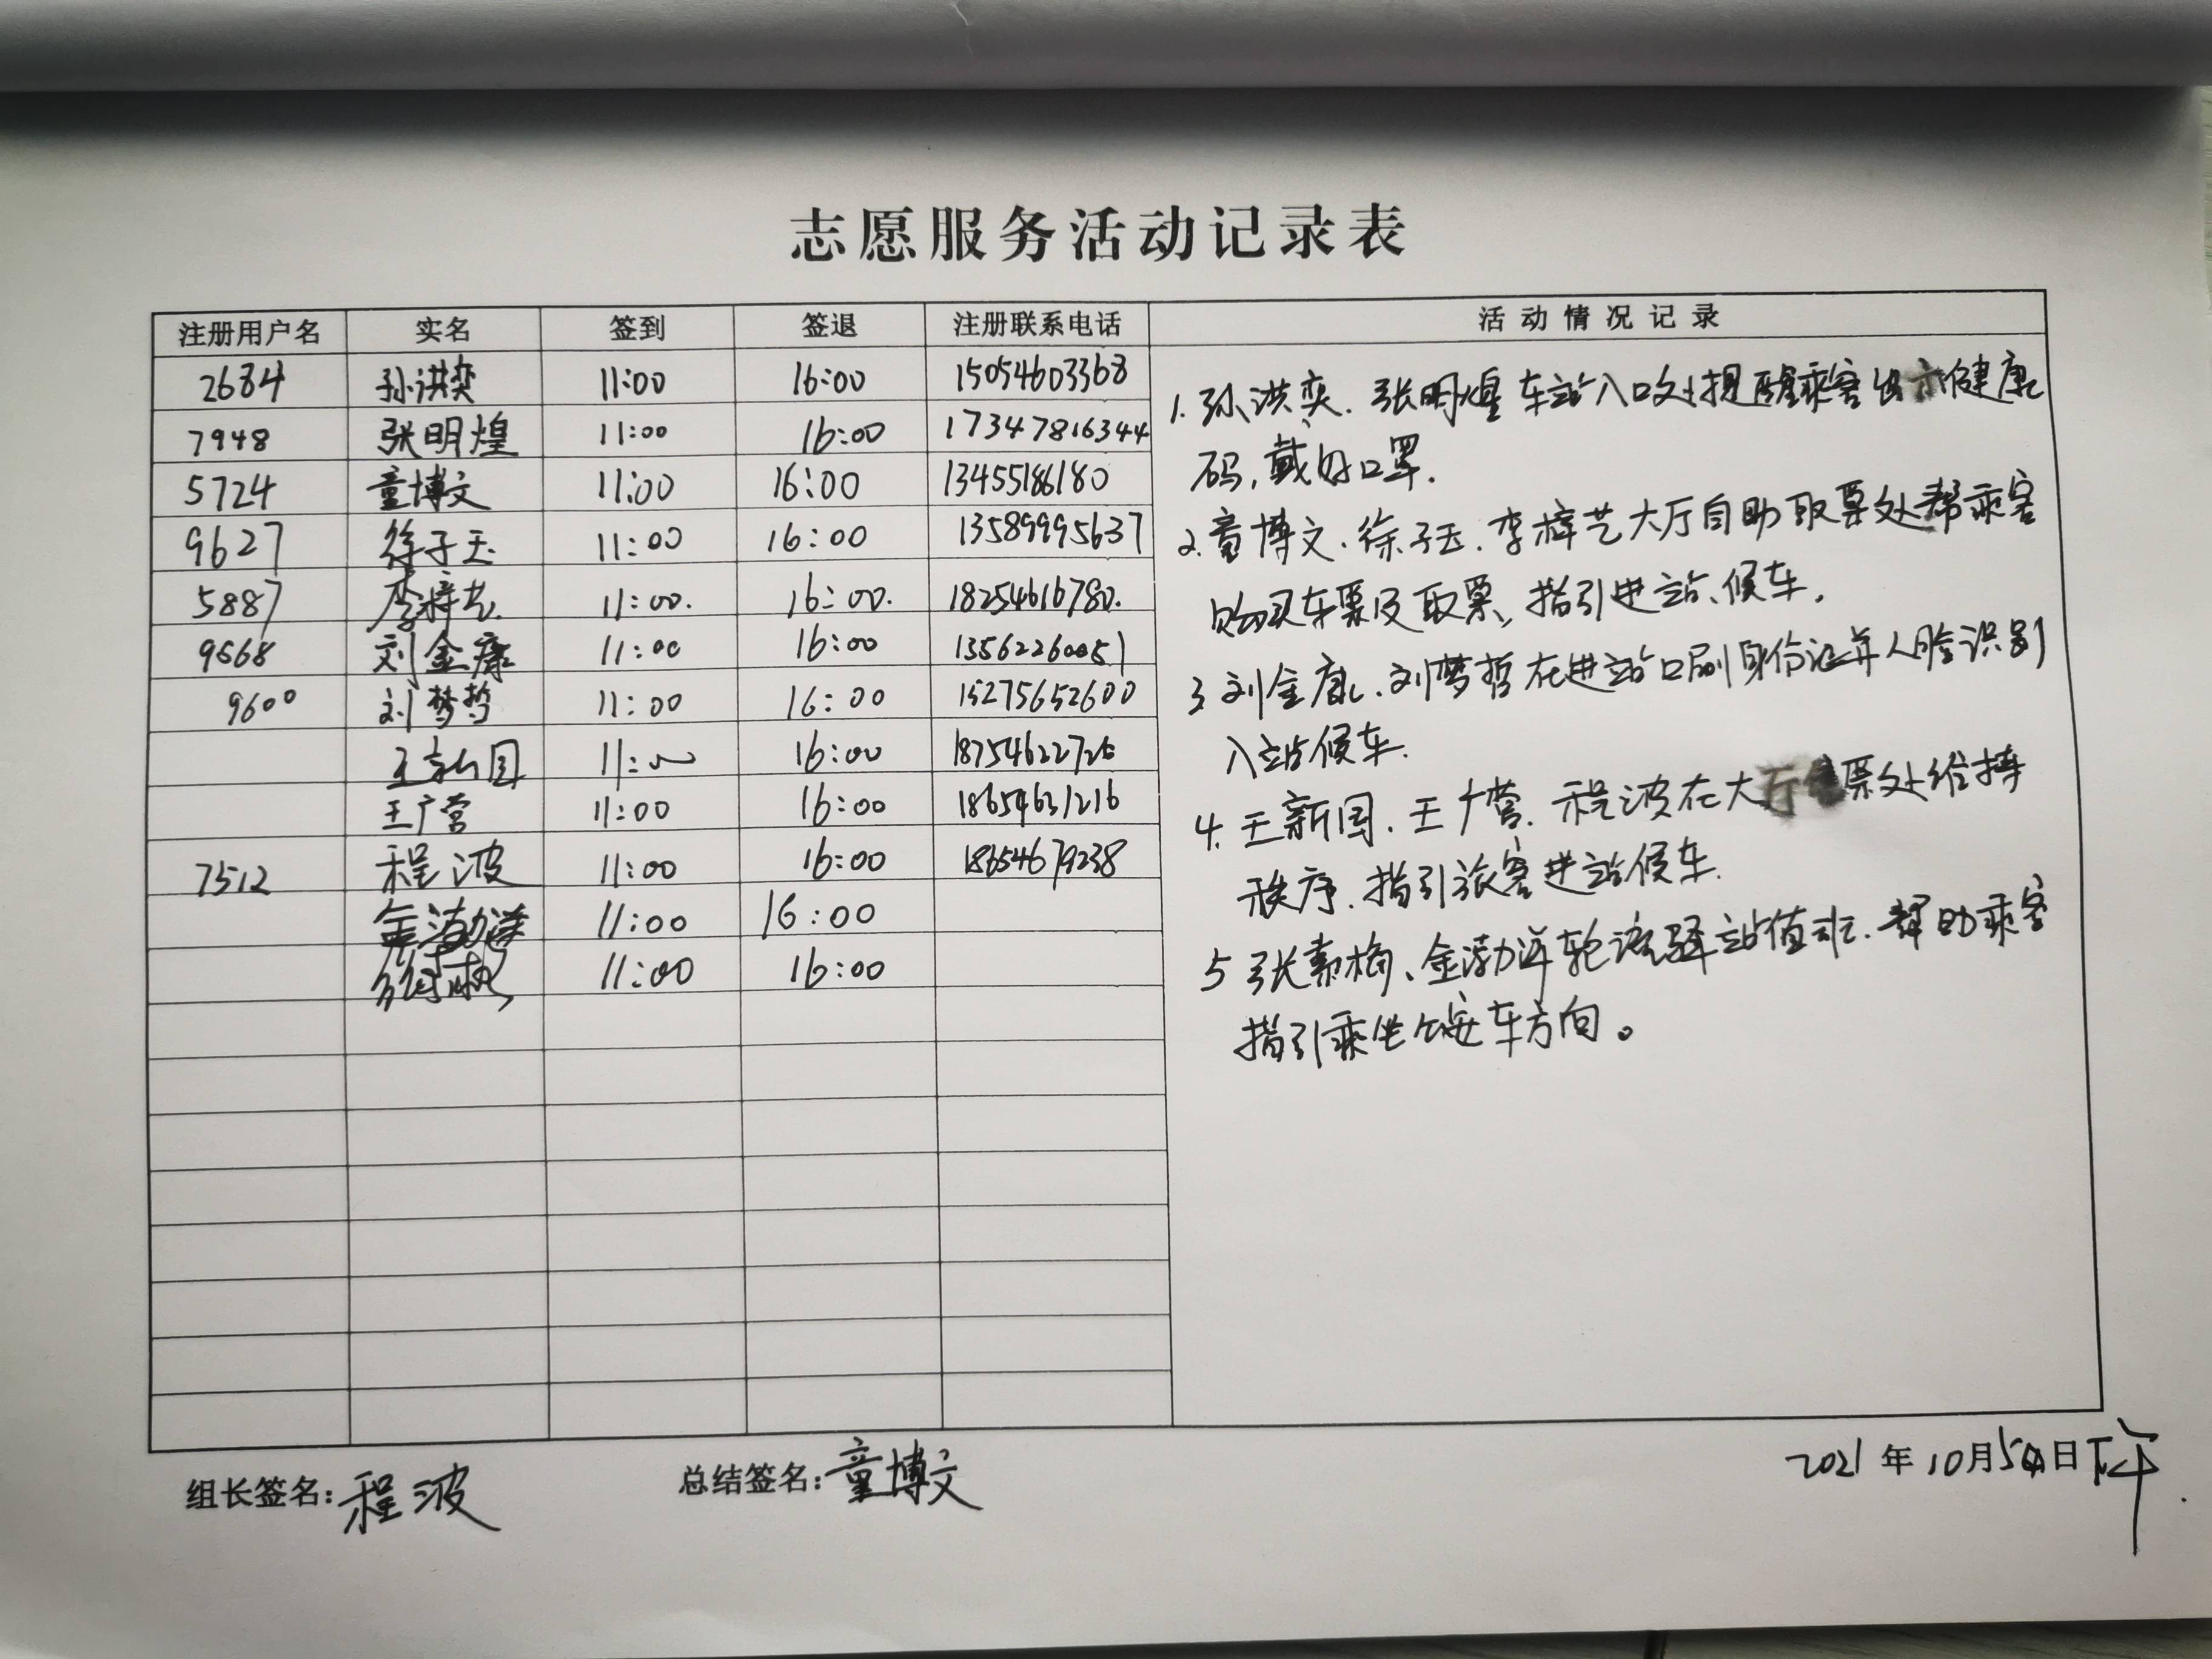 志愿服务活动记录表
注册用户名 实名 签到 签退 注册联系电话 活动情况记录
2684 孙洪奕 11:00 16:00 15054603368
7948 张明煌 11:00 16:00 17347816344
5724 童博文 11:00 16:00 13455186180
9627 徐子玉 11:00 16:00 13589995637
5887 李梓艺 11:00. 16:00. 18254616780.
9668 刘金康 11:00 16:00 13562260051
9600 刘梦哲 11:00 16:00 15275652600
王新国 11:00 16:00 18754622726
王广营 11:00 16:00 18654631216
7512 程波 11:00 16:00 18654679238
金渤洋 11:00 16:00
11:00 16:00
1. 孙洪奕、张明煌车站入口处提醒乘客出示健康
码,戴好口罩.
2. 童博文、徐子玉、李梓艺大厅自助取票处帮乘客
购买车票及取票、指引进站、候车.
3 刘金康、刘梦哲在进站口刷身份证并人脸识别
入站候车.
4. 王新国、王广营、程波在大厅售票处维持
秩序、指引旅客进站候车.
5 张素梅、金渤洋轮流驿站值班、帮助乘客
指引乘坐公交车方向。
组长签名:程波 总结签名:童博文 2021年10月5日下午